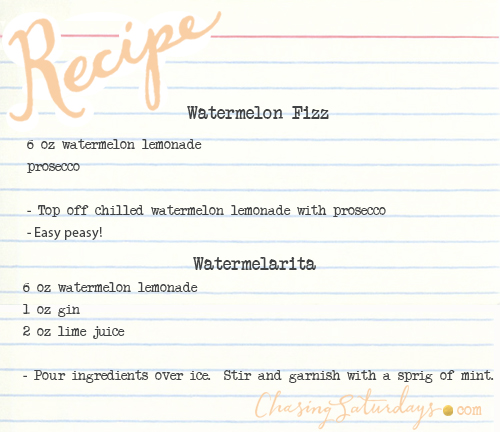 Recipe
Watermelon Fizz
6 oz watermelon lemonade
prosecco
- Top off chilled watermelon lemonade with prosecco
- Easy peasy!
Watermelarita
6 oz watermelon lemonade
1 oz gin
2 oz lime juice
- Pour ingredients over ice. Stir and garnish with a sprig of mint.
ChasingSaturdays.com